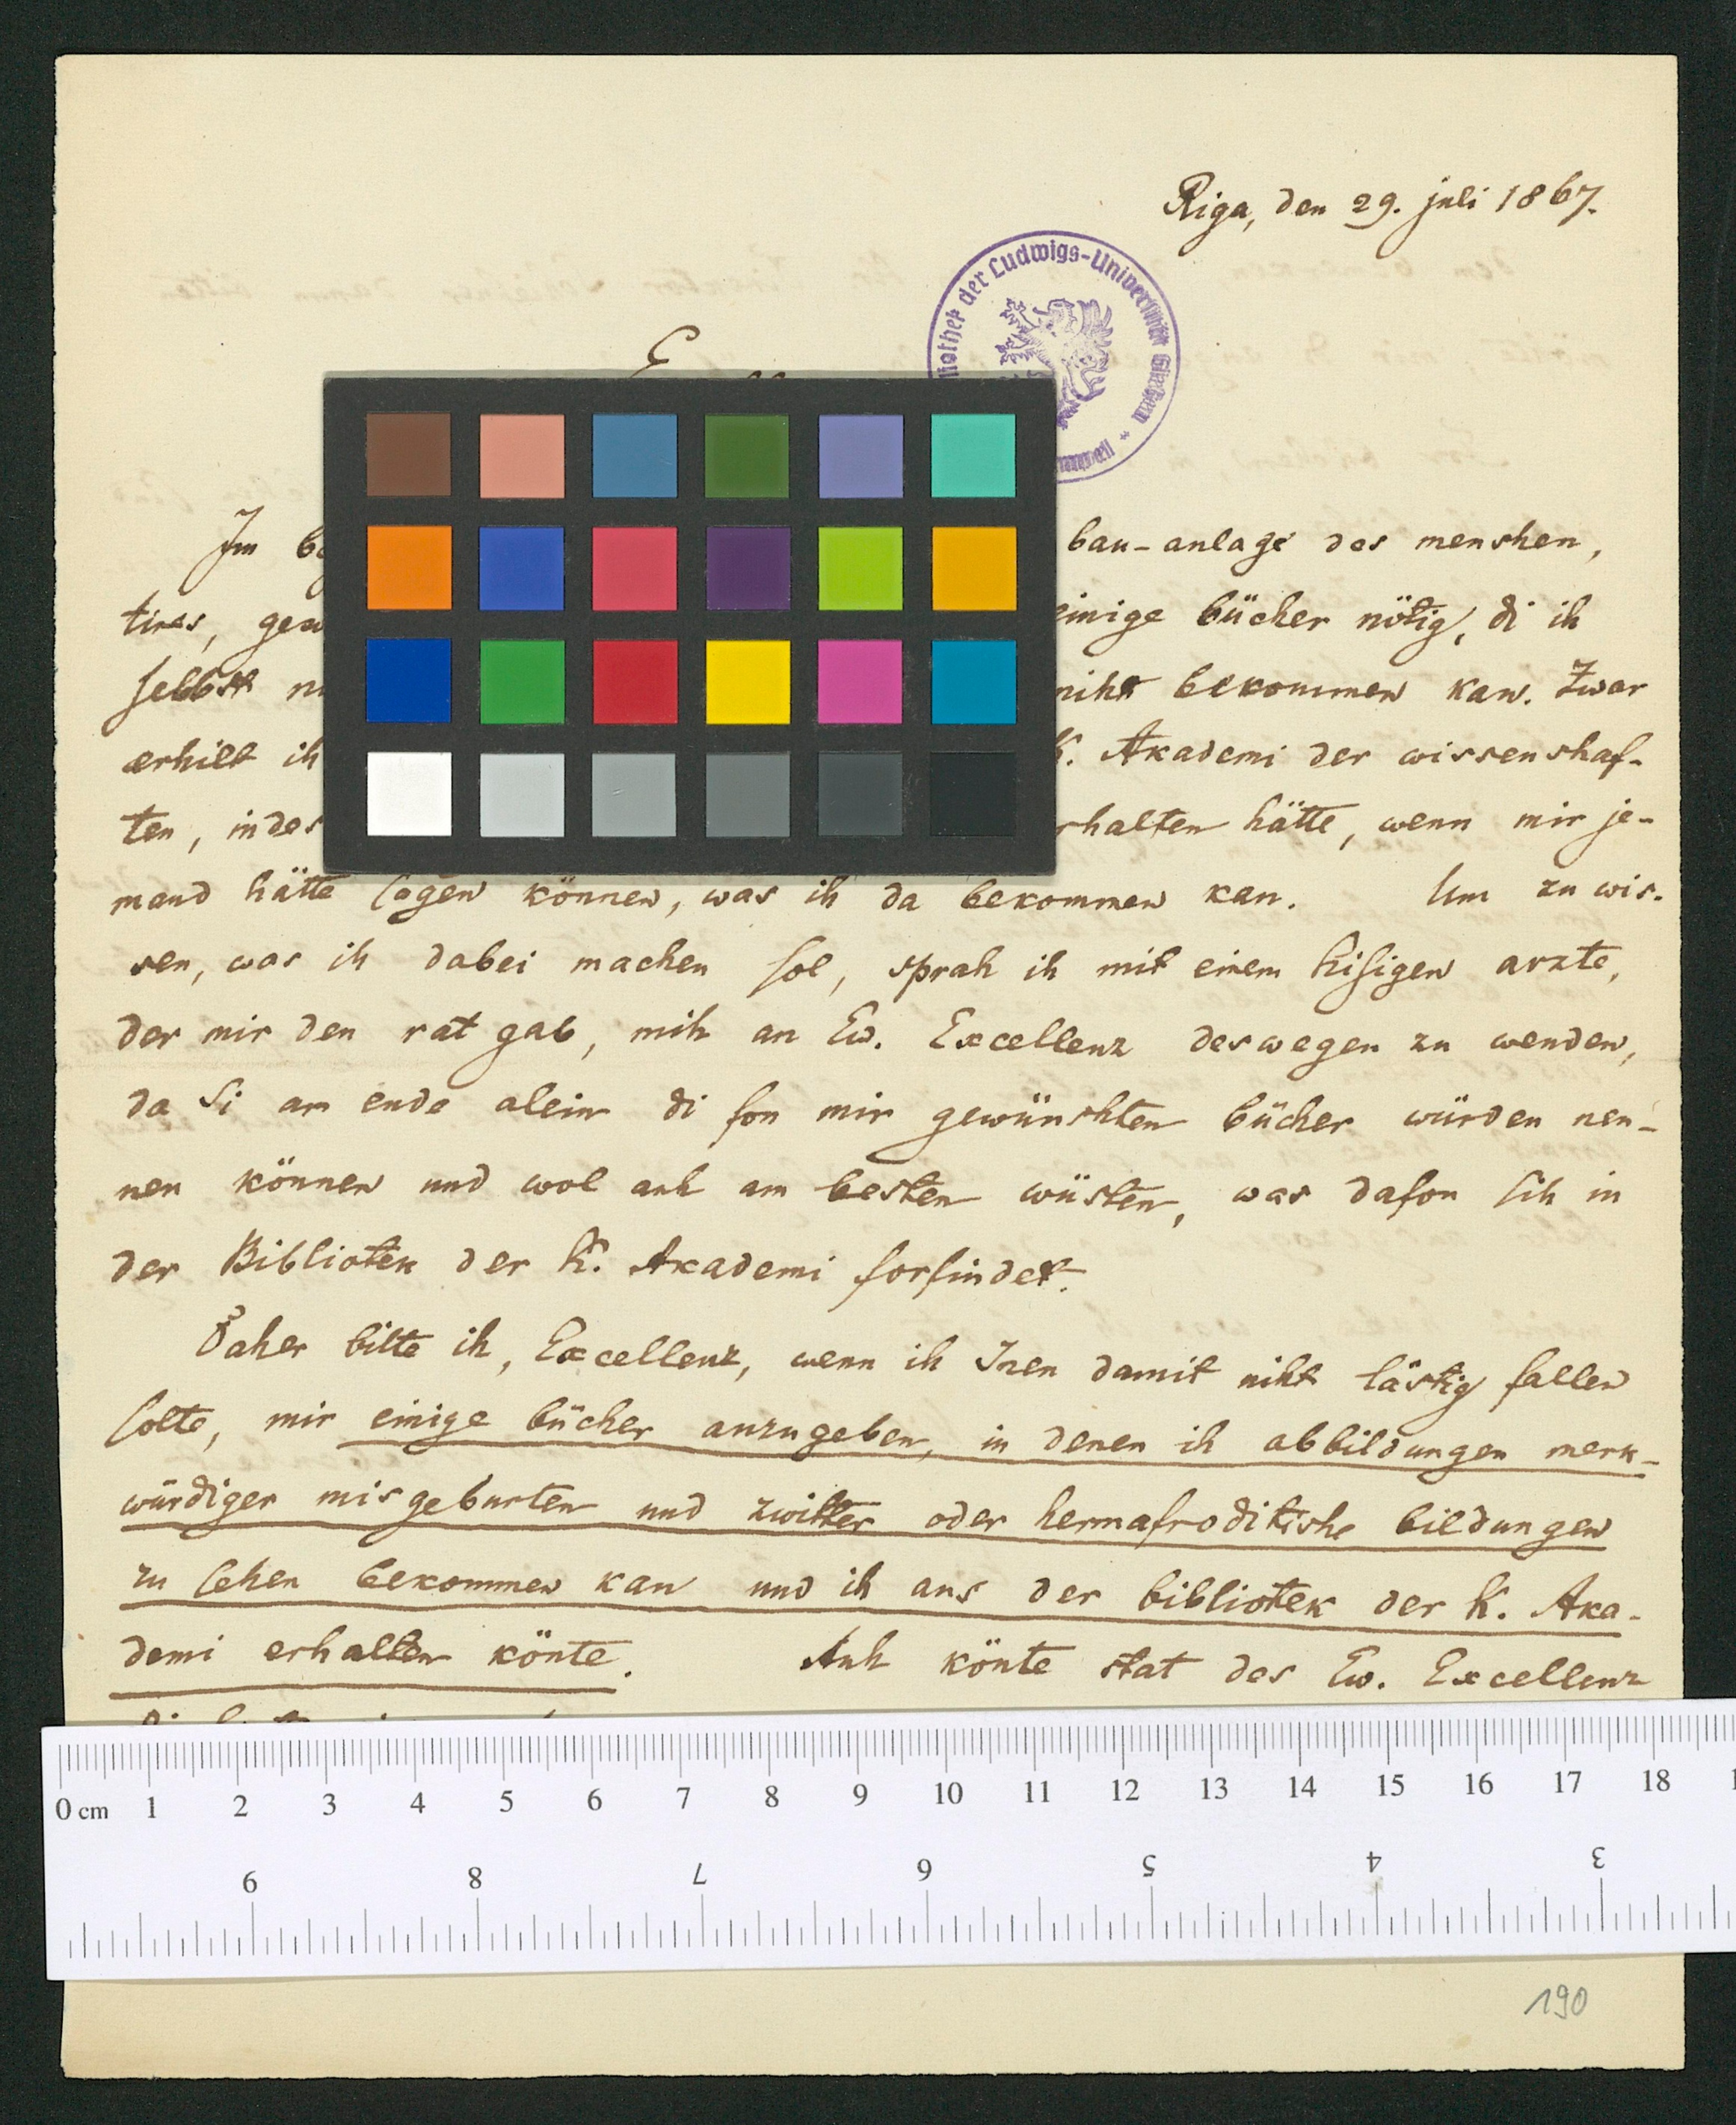 Riga, den 29. juli 1867.
der Ludwigs-Universität Gießen
Im
bau-anlage des menshen,
tires,
einige bücher nötig, di ih
selbst
niht bekommen kan. Zwar
erhilt ih
K. Akademi der wissenshaf-
ten, indes
hätte, wenn mir je-
mand hätte sagen können, was ih da bekommen kan. Um zu wis-
sen, was ih dabei machen sol, sprah ih mit einem hisigen arzte,
der mir den rat gab, mih an Ew. Excellenz deswegen zu wenden,
da Si am ende alein di fon mir gewünshten bücher würden nen-
nen können und wol auh am besten wüsten, was dafon sih in
der Bibliotek der K. Akademi forfindet.
Daher bitte ih, Excellenz, wenn ih Inen damit niht lästig fallen
solte, mir einige bücher anzugeben, in denen ih abbildungen merk-
würdiger misgeburten und zwitter oder hermafroditishe bildungen
zu sehen bekommen kan und ih aus der bibliotek der K. Aka-
demi erhalten könte. Auh könte stat des Ew. Excellenz
0 cm 1 2 3 4 5 6 7 8 9 10 11 12 13 14 15 16 17 18
9 8 7 6 5 4 3
190